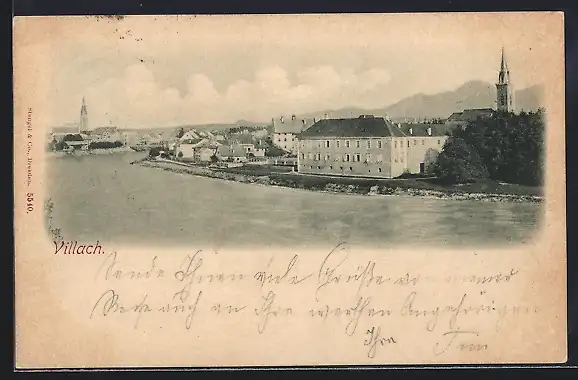 Stengel & Co., Dresden. 5540.
Villach.
Sende Ihnen viele Grüße von meiner
Reise auch an Ihre werthen Angehörigen
Ihre